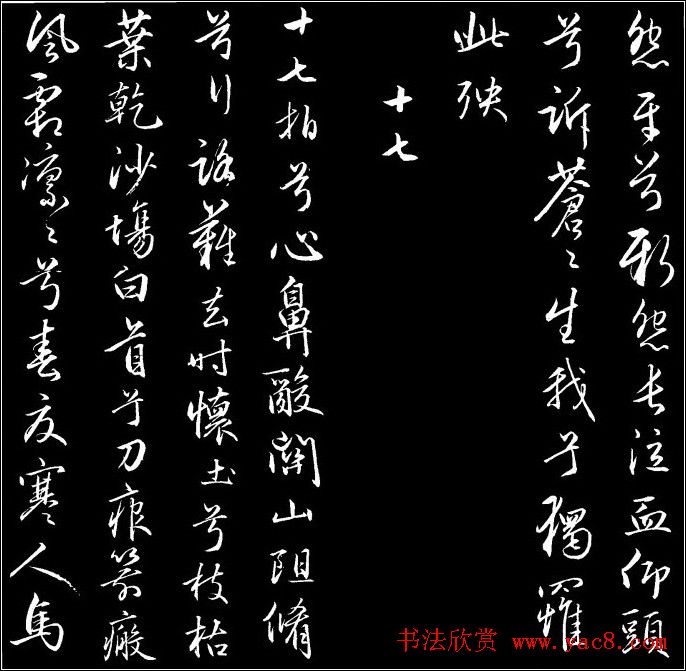 怨平兮新怨長泣血仰頭
兮訴蒼〻生我兮獨罹
此殃
十七
十七拍兮心鼻酸關山阻脩
兮行路難去時懷土兮枝枯
葉乾沙場白首兮刀痕箭瘢
風霜凜〻兮春夏寒人馬
书法欣赏 www.yac8.com